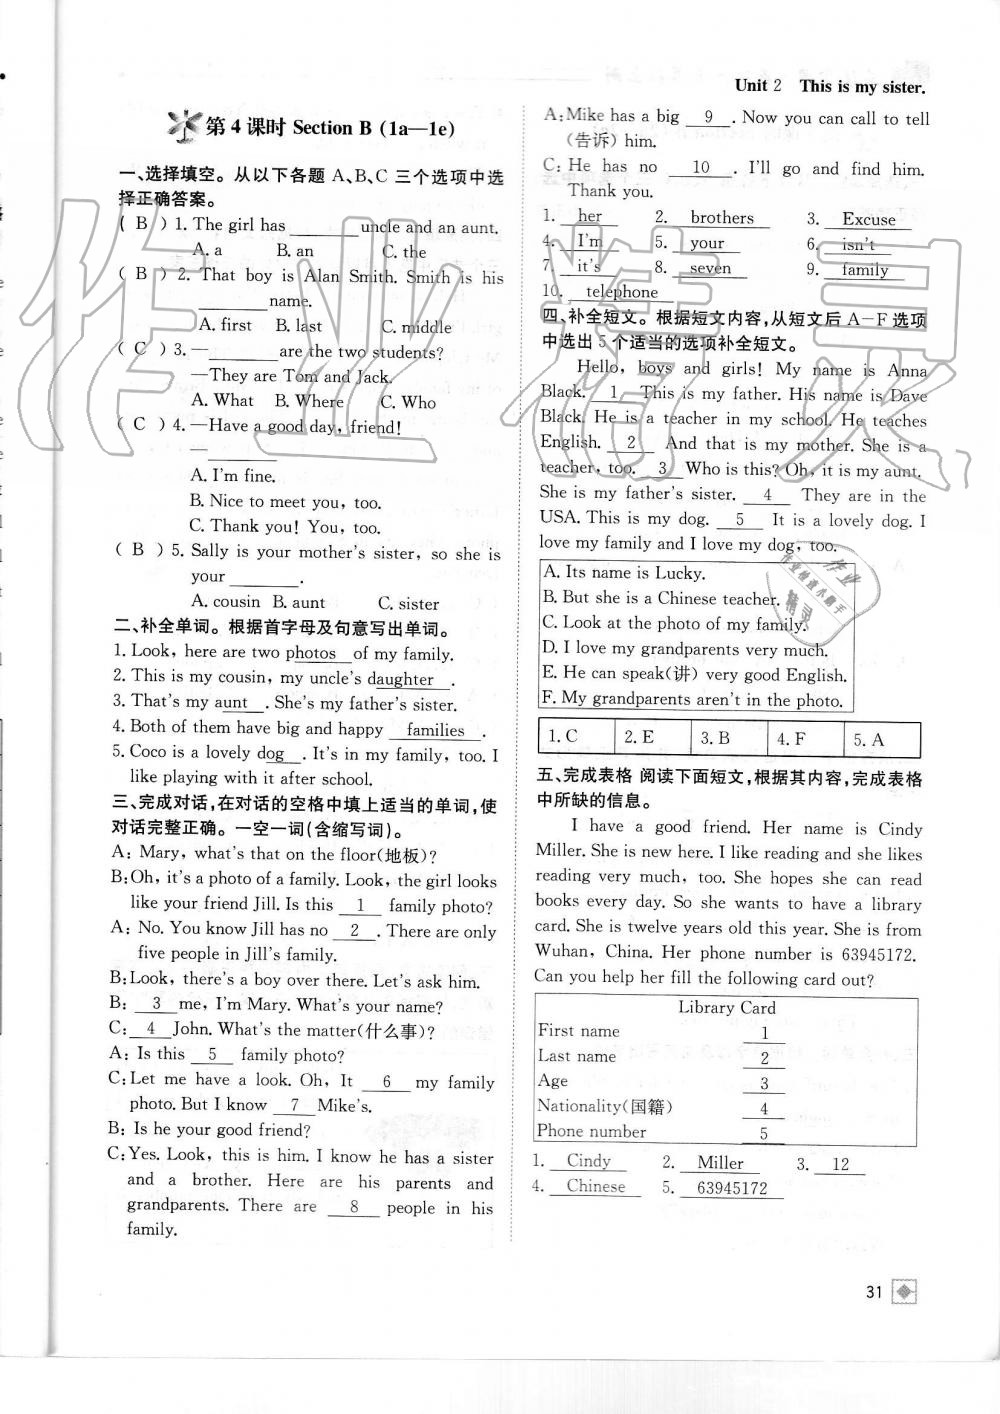 Unit 2 This is my sister.
第4课时 Section B (1a—1e)
一、选择填空。从以下各题 A、B、C 三个选项中选
择正确答案。
( B )1. The girl has ________ uncle and an aunt.
A. a B. an C. the
( B )2. That boy is Alan Smith. Smith is his
________ name.
A. first B. last C. middle
( C )3. —________ are the two students?
—They are Tom and Jack.
A. What B. Where C. Who
( C )4. —Have a good day, friend!
—________
A. I'm fine.
B. Nice to meet you, too.
C. Thank you! You, too.
( B )5. Sally is your mother's sister, so she is
your ________.
A. cousin B. aunt C. sister
二、补全单词。根据首字母及句意写出单词。
1. Look, here are two photos of my family.
2. This is my cousin, my uncle's daughter .
3. That's my aunt . She's my father's sister.
4. Both of them have big and happy families .
5. Coco is a lovely dog . It's in my family, too. I
like playing with it after school.
三、完成对话,在对话的空格中填上适当的单词,使
对话完整正确。一空一词(含缩写词)。
A: Mary, what's that on the floor(地板)?
B: Oh, it's a photo of a family. Look, the girl looks
like your friend Jill. Is this 1 family photo?
A: No. You know Jill has no 2 . There are only
five people in Jill's family.
B: Look, there's a boy over there. Let's ask him.
B: 3 me, I'm Mary. What's your name?
C: 4 John. What's the matter(什么事)?
A: Is this 5 family photo?
C: Let me have a look. Oh, It 6 my family
photo. But I know 7 Mike's.
B: Is he your good friend?
C: Yes. Look, this is him. I know he has a sister
and a brother. Here are his parents and
grandparents. There are 8 people in his
family.
A: Mike has a big 9 . Now you can call to tell
(告诉) him.
C: He has no 10 . I'll go and find him.
Thank you.
1. her 2. brothers 3. Excuse
4. I'm 5. your 6. isn't
7. it's 8. seven 9. family
10. telephone
四、补全短文。根据短文内容,从短文后 A-F 选项
中选出 5 个适当的选项补全短文。
Hello, boys and girls! My name is Anna
Black. 1 This is my father. His name is Dave
Black. He is a teacher in my school. He teaches
English. 2 And that is my mother. She is a
teacher, too. 3 Who is this? Oh, it is my aunt.
She is my father's sister. 4 They are in the
USA. This is my dog. 5 It is a lovely dog. I
love my family and I love my dog, too.
A. Its name is Lucky.
B. But she is a Chinese teacher.
C. Look at the photo of my family.
D. I love my grandparents very much.
E. He can speak(讲) very good English.
F. My grandparents aren't in the photo.
1. C 2. E 3. B 4. F 5. A
五、完成表格 阅读下面短文,根据其内容,完成表格
中所缺的信息。
I have a good friend. Her name is Cindy
Miller. She is new here. I like reading and she likes
reading very much, too. She hopes she can read
books every day. So she wants to have a library
card. She is twelve years old this year. She is from
Wuhan, China. Her phone number is 63945172.
Can you help her fill the following card out?
Library Card
First name 1
Last name 2
Age 3
Nationality(国籍) 4
Phone number 5
1. Cindy 2. Miller 3. 12
4. Chinese 5. 63945172
31
作业精灵
作业
作业检查小助手
精灵